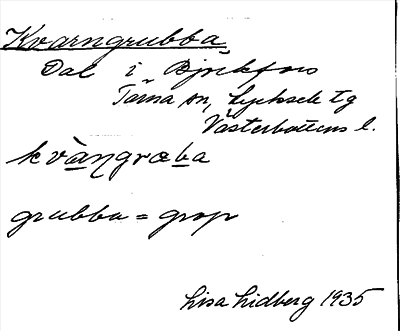 Kvarngrubba,
Dal i Björkfors
Tärna sn, Lycksele tg
Västerbottens l.
kvàŋgrɶba
grubba = grop
Lisa Lidberg 1935